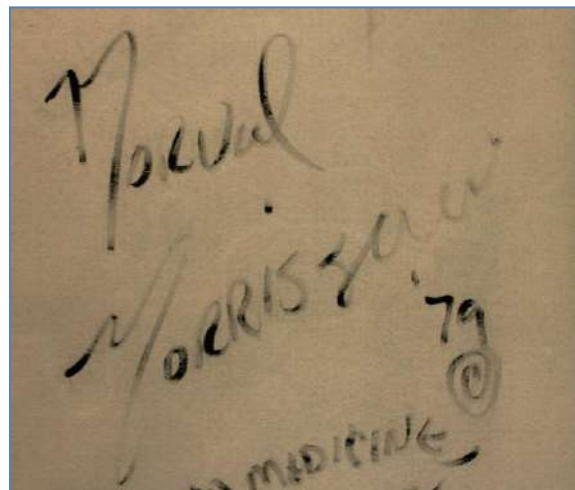 Norval
Morrisseau
'79
©
MEDICINE